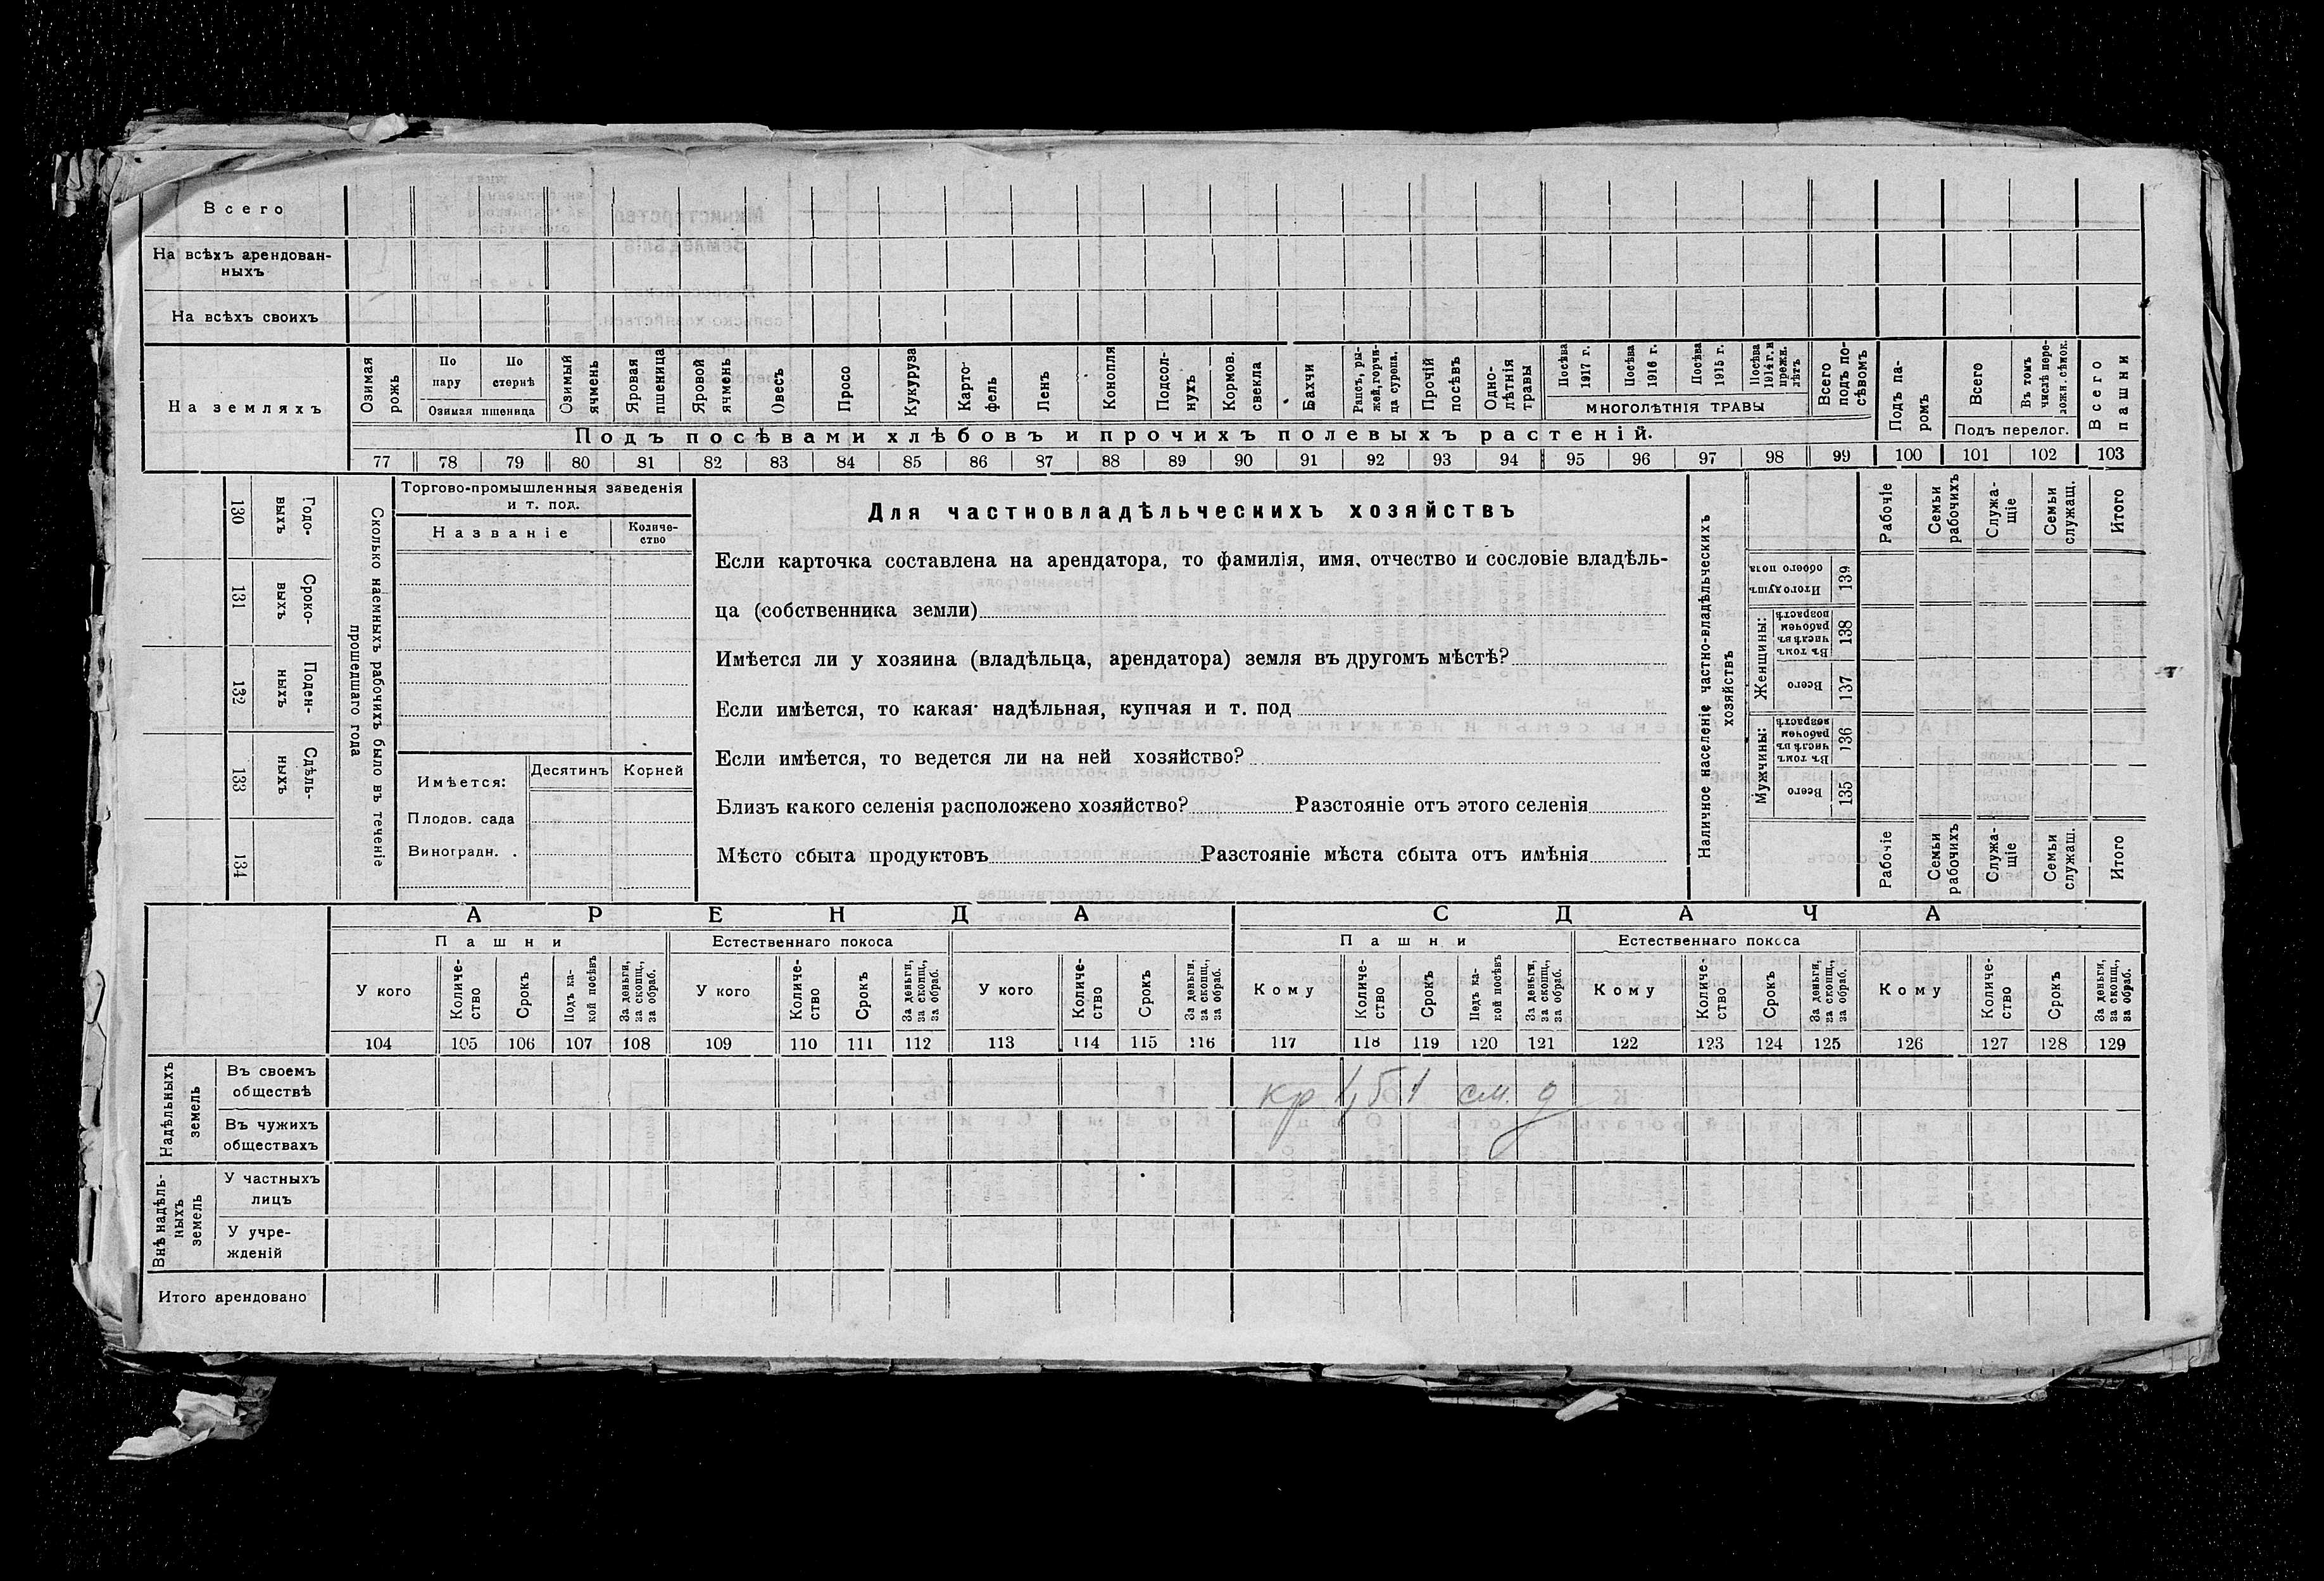 Всего
На всѣхъ арендован-
ныхъ
На всѣхъ своихъ
На земляхъ
Озимая рожь
По пару
По стернѣ
Озимая пшеница
Озимый ячмень
Яровая пшеница
Яровой ячмень
Овесъ
Просо
Кукуруза
Карто-
фель
Ленъ
Конопля
Подсол-
нухъ
Кормов. свекла
Бахчи
Рапсъ, ры-
жей, горчи-
ца сурепа.
Прочій посѣвъ
Одно-
лѣтнія травы
Посѣва 1917 г.
Посѣва 1916 г.
Посѣва 1915 г.
Посѣва 1914 г. и прежн. лѣтъ
МНОГОЛѢТНІЯ ТРАВЫ
Всего подъ по-
сѣвомъ
Подъ па-
ромъ
Всего
Въ томъ числѣ пере-
ложн. сѣнок.
Подъ перелог.
Всего пашни
Подъ посѣвами хлѣбовъ и прочихъ полевыхъ растеній.
77 78 79 80 81 82 83 84 85 86 87 88 89 90 91 92 93 94 95 96 97 98 99 100 101 102 103
130 Годо-
выхъ
131 Сроко-
выхъ
132 Поден-
ныхъ
133 Сдѣль-
ныхъ
134
Сколько наемныхъ рабочихъ было въ теченіе
прошедшаго года
Торгово-промышленныя заведенія
и т. под.
Названіе
Количе-
ство
Имѣется:
Десятинъ Корней
Плодов. сада
Виноградн. .
Для частновладѣльческихъ хозяйствъ
Если карточка составлена на арендатора, то фамилія, имя, отчество и сословіе владѣль-
ца (собственника земли)
Имѣется ли у хозяина (владѣльца, арендатора) земля въ другомъ мѣстѣ?
Если имѣется, то какая· надѣльная, купчая и т. под
Если имѣется, то ведется ли на ней хозяйство?
Близъ какого селенія расположено хозяйство? Разстояніе отъ этого селенія
Мѣсто сбыта продуктовъ Разстояніе мѣста сбыта отъ имѣнія
Наличное населеніе частно-владѣльческихъ
хозяйствъ
Рабочіе
Семьи рабочихъ
Служа-
щіе
Семьи служащ.
Итого
Итого душъ обоего пола 139
Женщины:
Въ томъ числѣ въ рабочем возрастѣ 138
Всего 137
Мужчины:
Въ томъ числѣ въ рабочем возрастѣ 136
Всего 135
Рабочіе
Семьи рабочихъ
Служа-
щіе
Семьи служащ.
Итого
АРЕНДА
СДАЧА
Пашни
Естественнаго покоса
Пашни
Естественнаго покоса
У кого
Количе-
ство
Срокъ
Подъ ка-
кой посѣвъ
За деньги, за скопщ., за обраб.
У кого
Количе-
ство
Срокъ
За деньги, за скопщ., за обраб.
У кого
Количе-
ство
Срокъ
За деньги, за скопщ., за обраб.
Кому
Количе-
ство
Срокъ
Подъ ка-
кой посѣвъ
За деньги, за скопщ., за обраб.
Кому
Количе-
ство
Срокъ
За деньги, за скопщ., за обраб.
Кому
Количе-
ство
Срокъ
За деньги, за скопщ., за обраб.
104 105 106 107 108 109 110 111 112 113 114 115 116 117 118 119 120 121 122 123 124 125 126 127 128 129
Надѣльныхъ земель
Въ своемъ
обществѣ
кр 1,51 см. д
Въ чужихъ
обществахъ
Внѣ надѣль-
ныхъ земель
У частныхъ
лицъ
У учре-
жденій
Итого арендовано